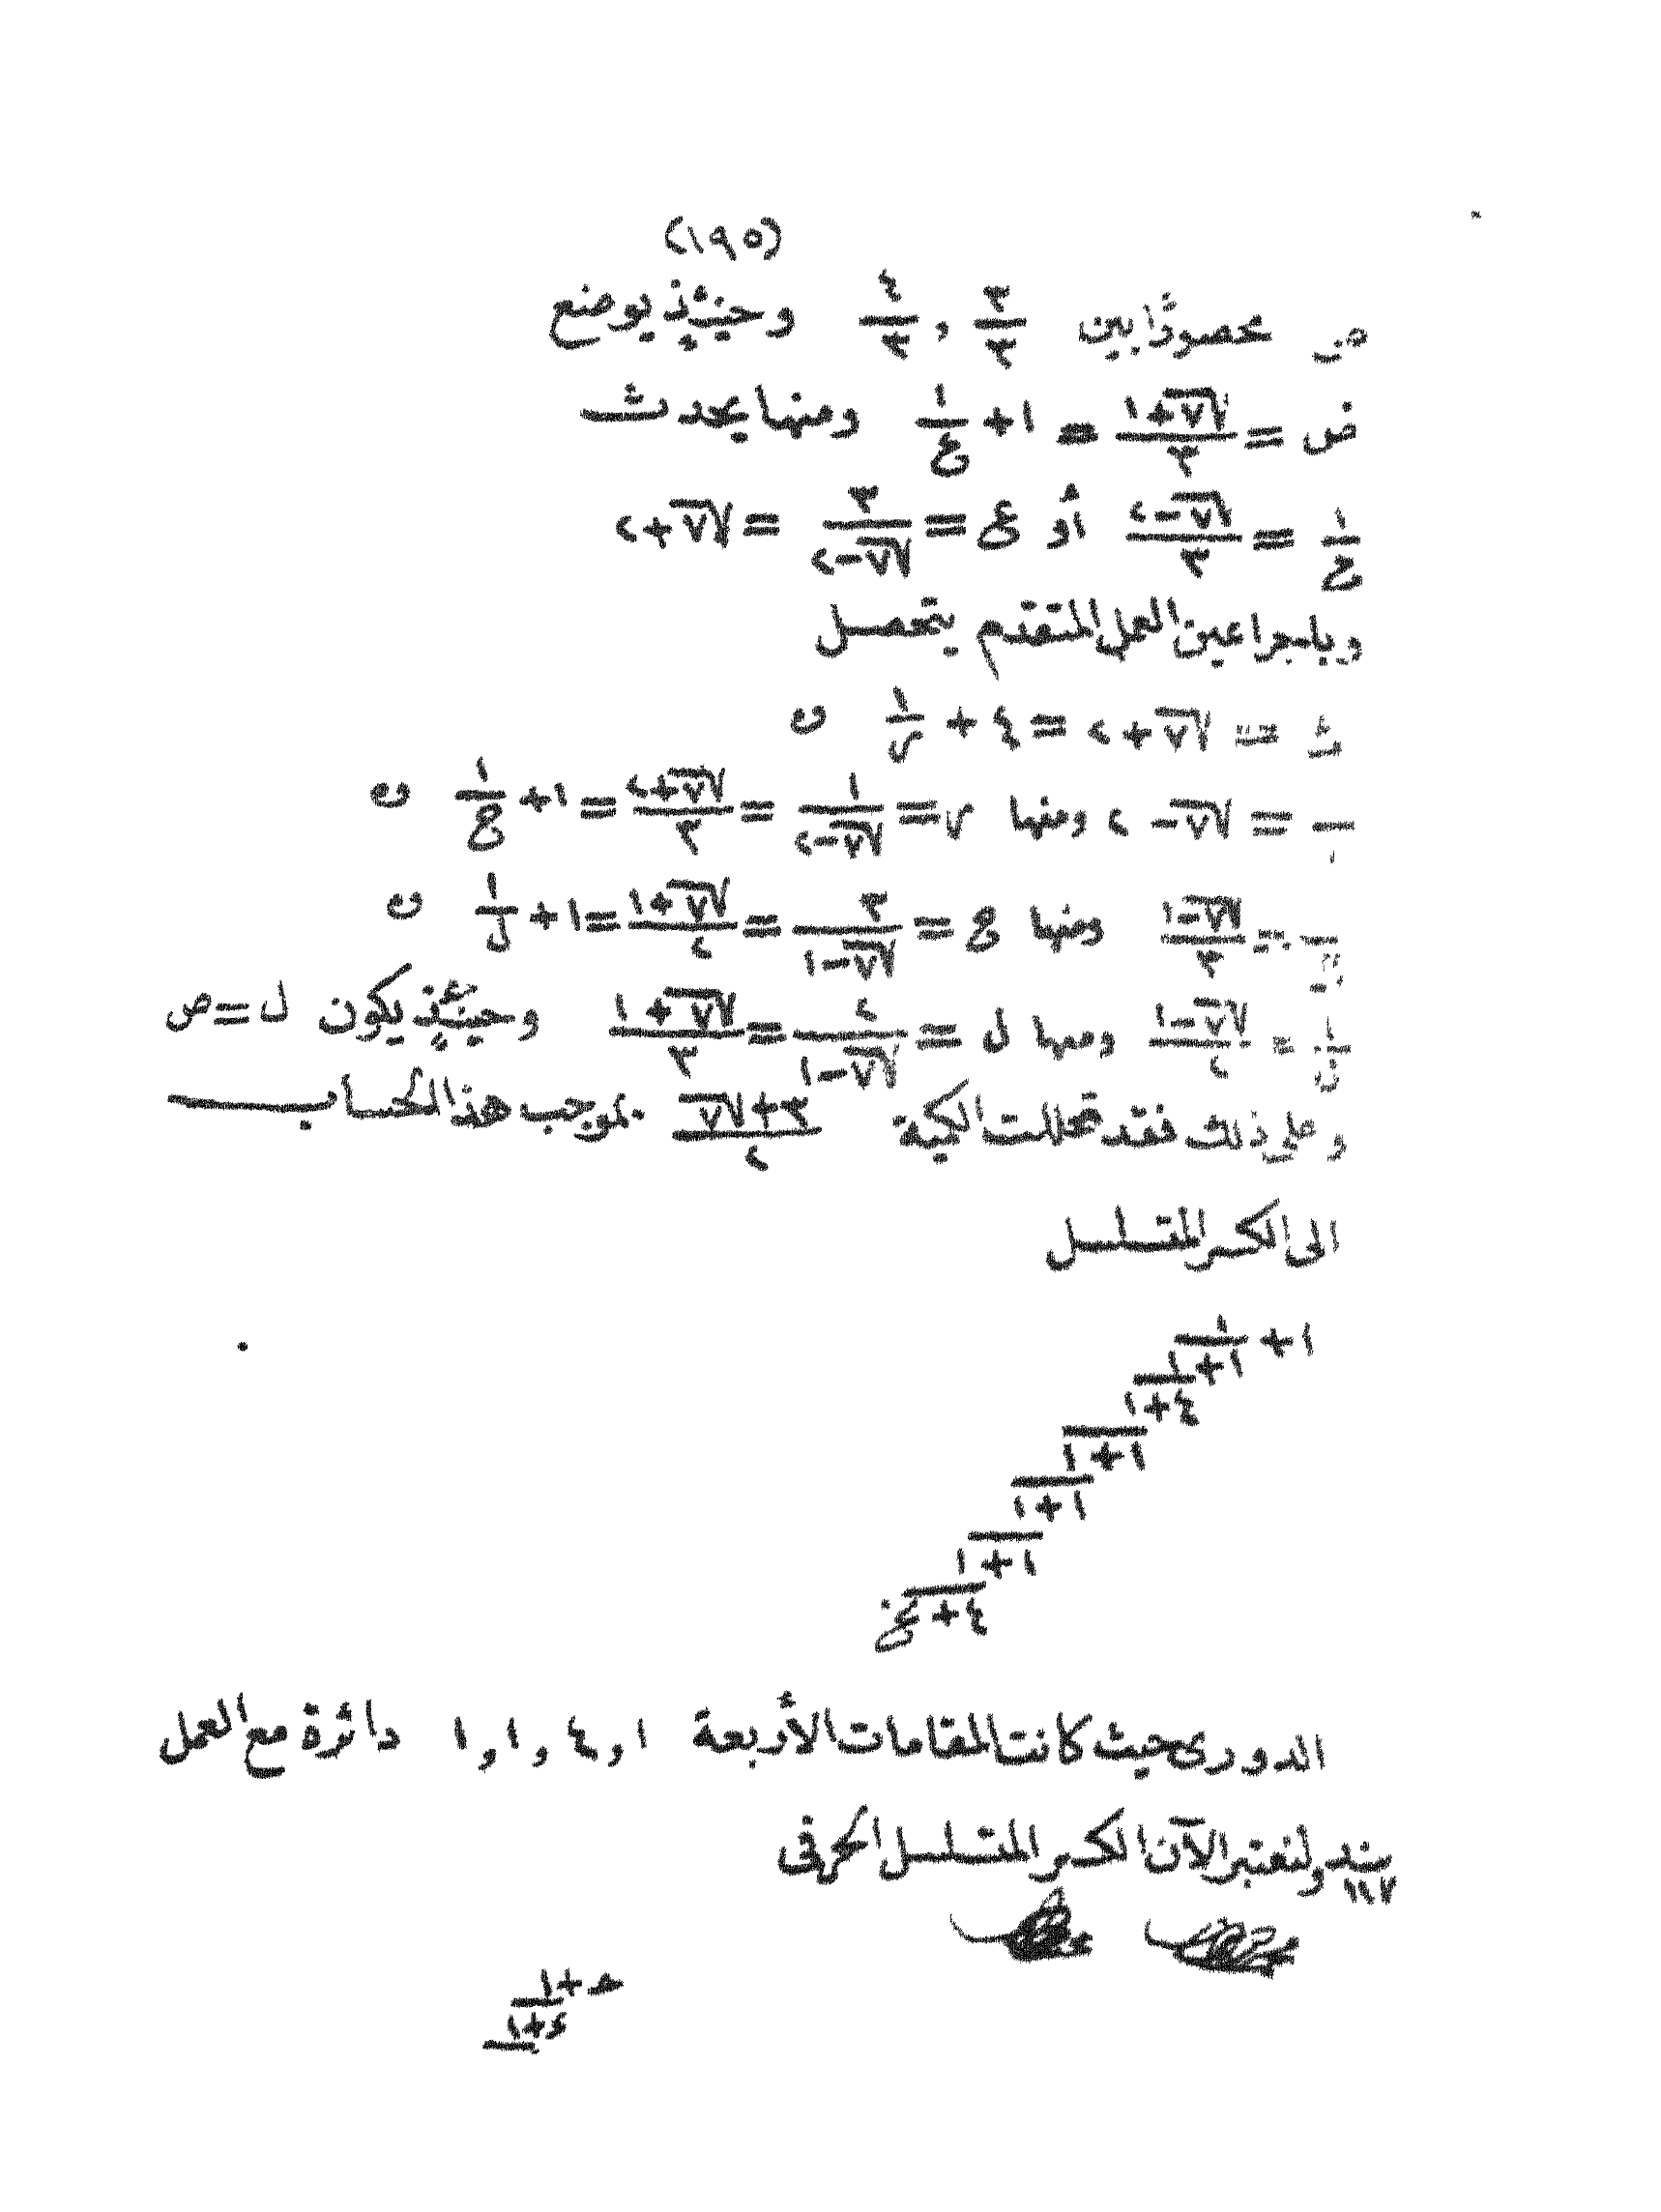 (١٩٥)
ص محصورًا بين ٣/٣ , ٤/٣ وحينئذٍ يوضع
ص = (√٧+١)/٣ = ١+ ١/ع ومنها يحدث
١/ع = (√٧-٢)/٣ أو ع = ٣/(√٧-٢) = √٧+٢
وباجرا عين العمل المتقدم يتحصل
= √٧ + ٢ = ٤ + ١/س ں
= √٧ - ٢ ومنها س = ١/(√٧-٢) = (√٧+٢)/٣ = ١+ ١/ع ں
= (√٧-١)/٣ ومنها ع = ٣/(√٧-١) = (√٧+١)/٢ = ١+ ١/ل ں
١/ل = (√٧-١)/٢ ومنها ل = ٢/(√٧-١) = (√٧+١)/٣ وحينئذٍ يكون ل=ص
وعلى ذلك فقد تحللت الكمية (٣+√٧)/٢ بموجب هذا الحساب
الى الكسر المتسلسل
١ + ١
١+١
٤+١
١+١
١+١
١+١
٤+ الخ
الدورى حيث كانت المقامات الأربعة ١ و٤ و١ و١ دائرة مع العمل
بند ولنعتبر الآن الكسر المتسلسل الحرفى
١١٧
ح+١
د+١